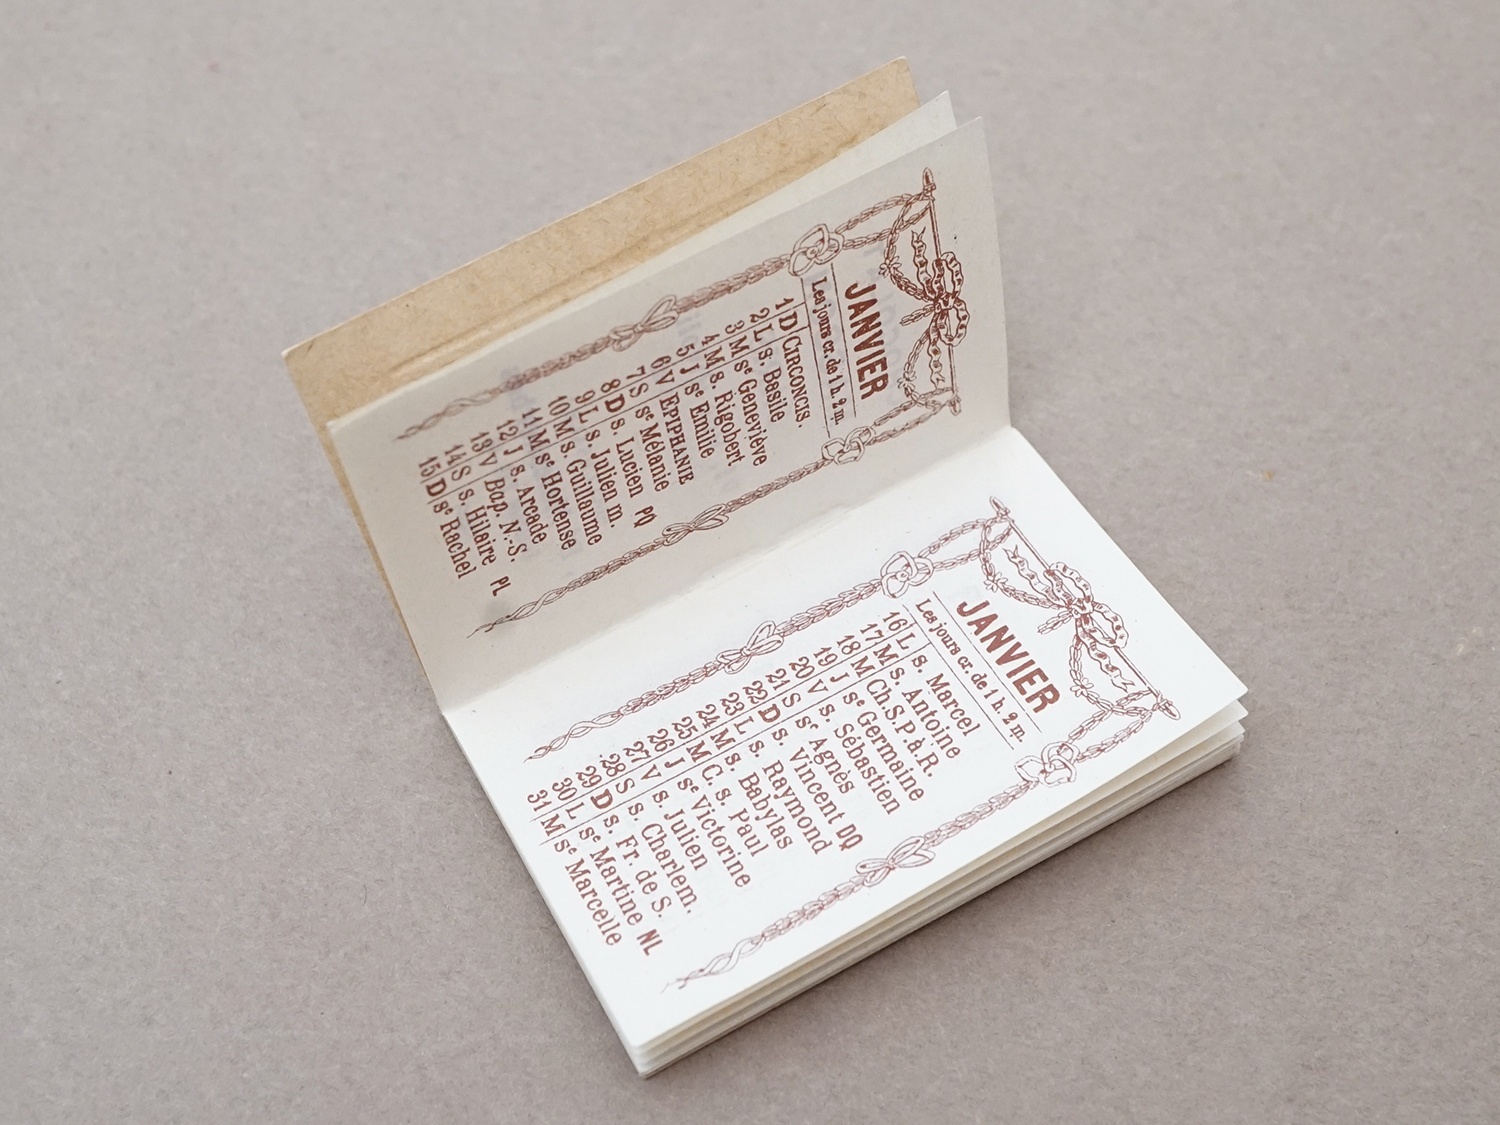 JANVIER
Les jours cr. de 1 h. 2 m.
1 D CIRCONCIS.
2 L s. Basile
3 M sᵉ Geneviève
4 M s. Rigobert
5 J sᵉ Emilie
6 V EPIPHANIE
7 S sᵉ Mélanie
8 D s. Lucien PQ
9 L s. Julien m.
10 M s. Guillaume
11 M sᵉ Hortense
12 J s. Arcade
13 V Bap. N.-S.
14 S s. Hilaire
15 D sᵉ Rachel PL
JANVIER
Les jours cr. de 1 h. 2 m.
16 L s. Marcel
17 M s. Antoine
18 M Ch.S.P.à.R.
19 J sᵉ Germaine
20 V s. Sébastien
21 S sᵉ Agnès
22 D s. Vincent DQ
23 L s. Raymond
24 M s. Babylas
25 M C. s. Paul
26 J sᵉ Victorine
27 V s. Julien
28 S s. Charlem.
29 D s. Fr. de S.
30 L sᵉ Martine NL
31 M sᵉ Marcelle